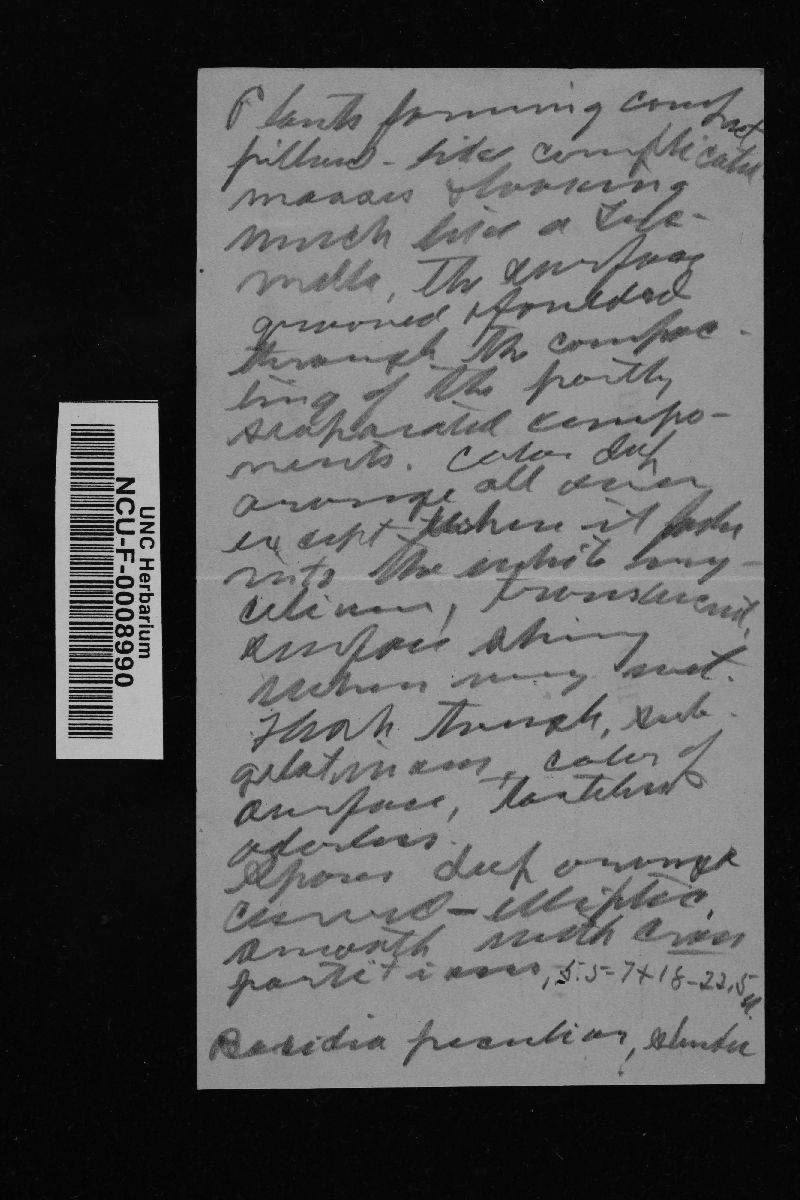 Plants forming compact
pillow-like complicated
masses & looking
much like a Tre-
mella, the surface
grooved & founded
through the compac-
ting of the partly
seaparated compo-
nents. Color deep
orange all over
except where it fades
into the white my-
celium, translucent,
surface shiny
when very wet.
Flesh tough, sub-
gelatinous, color of
surface, tasteless
odorless.
Spores deep orange
curved-elliptic,
smooth with cross
partitions, 5.5-7 x 18-22.5 µ.
Basidia peculiar, slender
UNC Herbarium
NCU-F-0008990